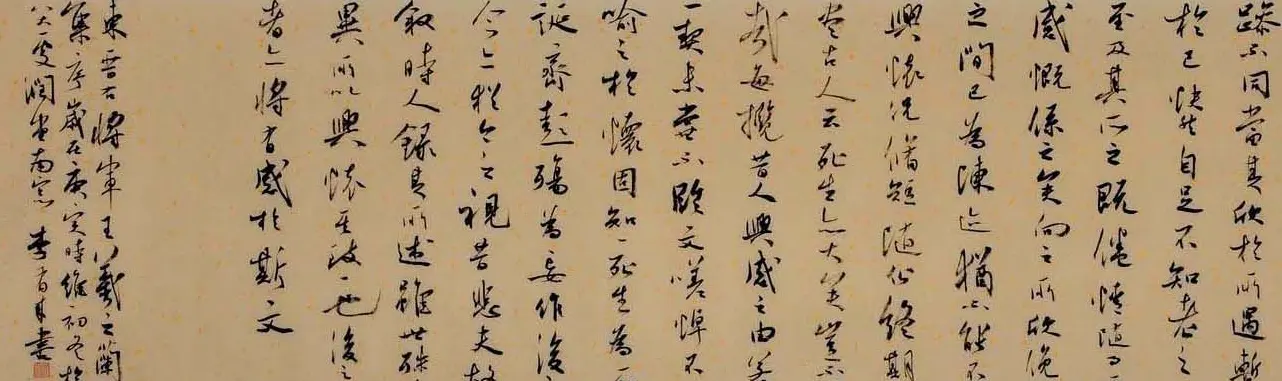 躁不同當其欣於所遇暫
於己快然自足不知老之
至及其所之既倦情隨事
感慨係之矣向之所欣俛
之間已為陳迹猶不能不
興懷況脩短隨化終期
盡古人云死生亦大矣豈不
哉每攬昔人興感之由若
一契未嘗不臨文嗟悼不
喻之於懷固知一死生為
誕齊彭殤為妄作後
今亦猶今之視昔悲夫故
敘時人錄其所述雖世殊
異所以興懷其致一也後之
者亦將有感於斯文
東晉右將軍王羲之蘭
集序歲在庚寅時維初冬於
八大處潤
書